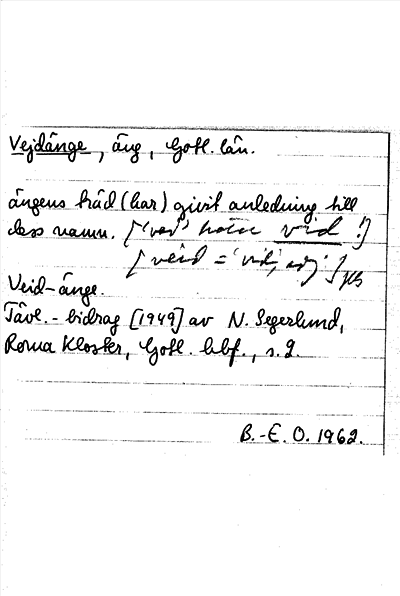 Vejdänge, äng, Gotl. län.
ängens träd (har) givit anledning till
dess namn. ['ved' heter vid !]
[veid = 'vid', adj.]
Veid-änge.
Tävl.-bidrag [1949] av N. Segerlund,
Roma Kloster, Gotl. hbf., s. 2.
B.-E. O. 1962.